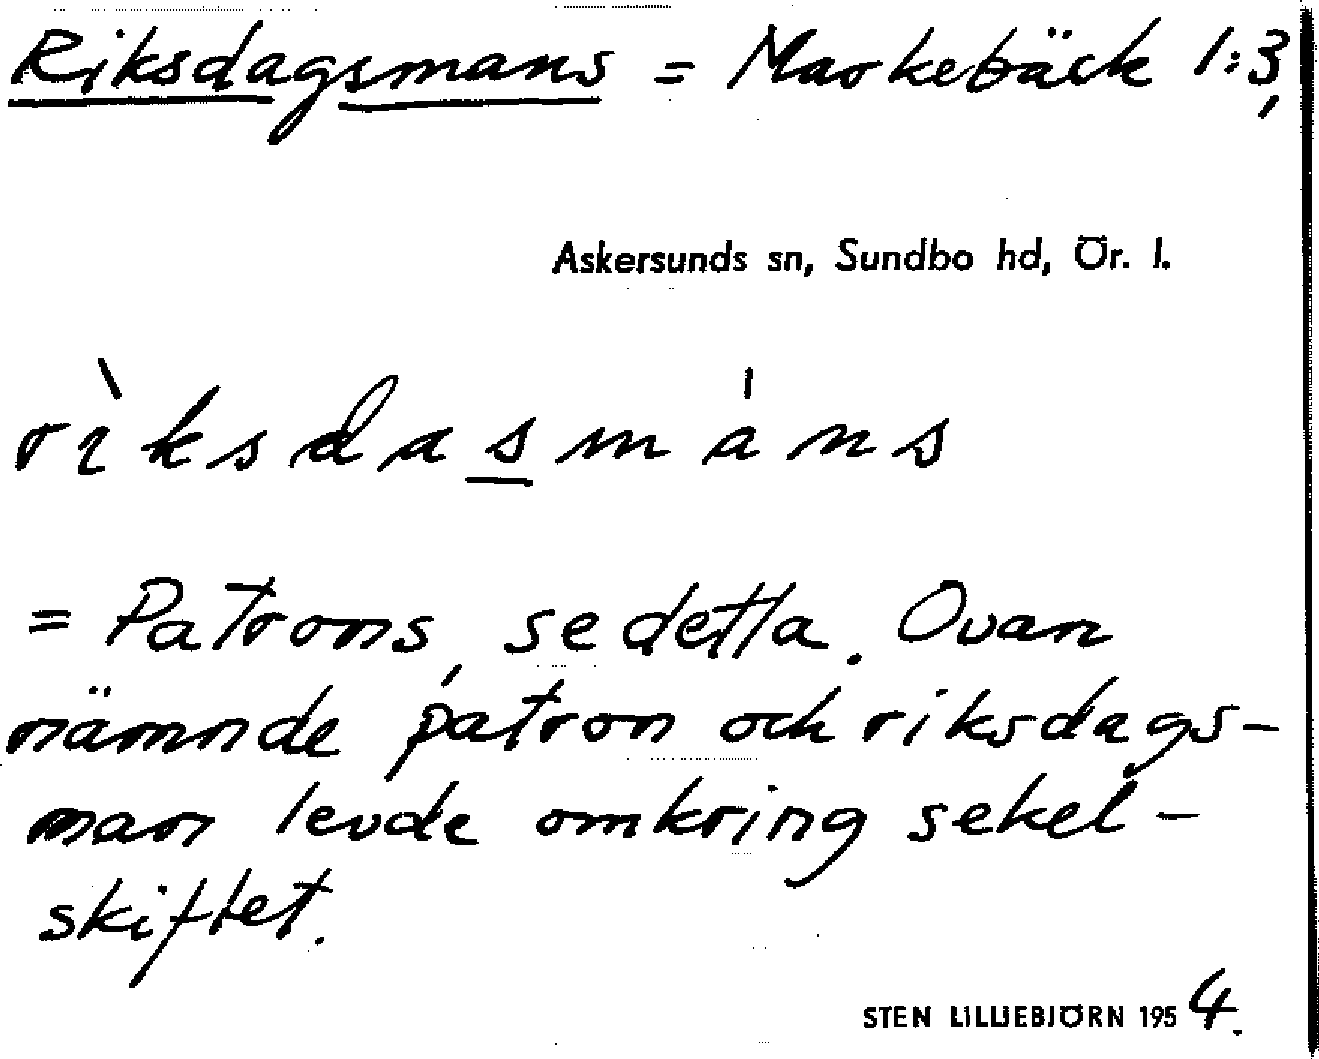 Riksdagsmans = Markebäck 1:3,
Askersunds sn, Sundbo hd, Ör. l.
rìksdasmáns
= Patrons, se detta. Ovan
nämnde patron och riksdags-
man levde omkring sekel-
skiftet.
STEN LILLIEBJÖRN 1954.